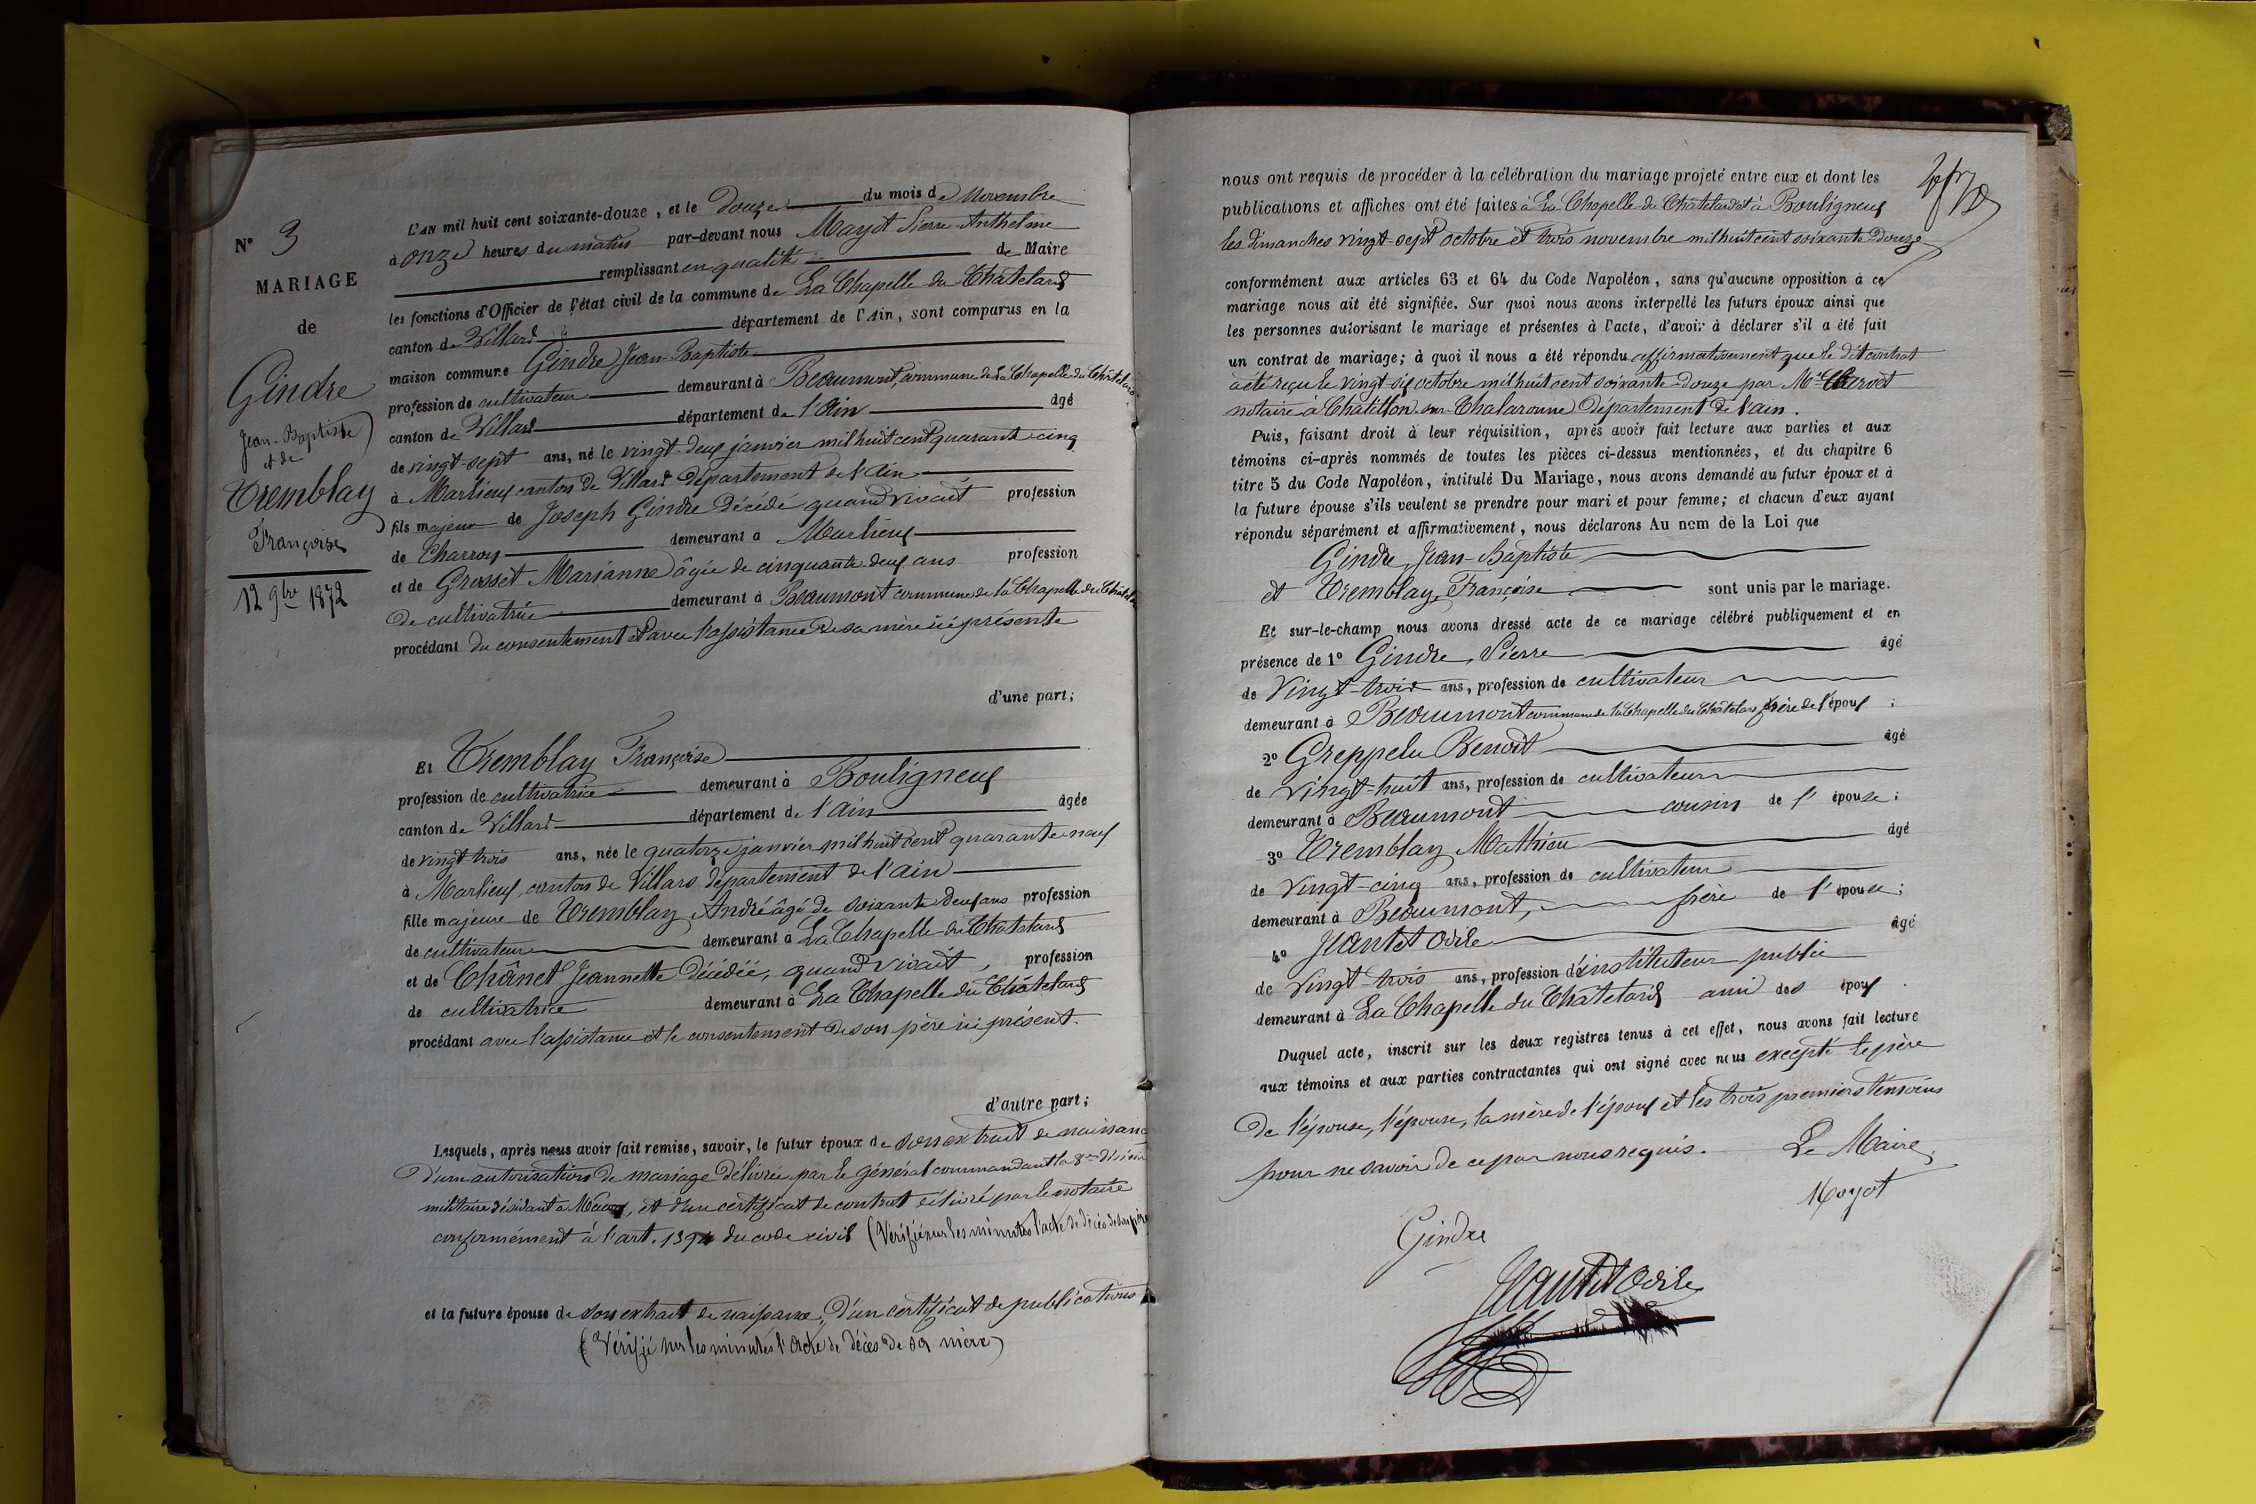 N° 3
MARIAGE
de
Gindre
Jean-Baptiste
et de
Tremblay
Françoise
12 9bre 1872
L'AN mil huit cent soixante-douze, et le douze du mois de Novembre
à onze heures du matin par-devant nous Mayot Pierre Anthelme
remplissant en qualité de Maire
les fonctions d'Officier de l'état civil de la commune de La Chapelle du Châtelard
canton de Villars département de l'Ain, sont comparus en la
maison commune Gindre Jean-Baptiste
profession de cultivateur demeurant à Beaumont, commune de La Chapelle du Châtelard
canton de Villars département de l'Ain âgé
de vingt-sept ans, né le vingt-deux janvier mil huit cent quarante-cinq
à Marlieux canton de Villars département de l'Ain
fils majeur de Joseph Gindre décédé quand vivait profession
de Charron demeurant à Marlieux
et de Grosset Marianne âgée de cinquante-deux ans profession
de cultivatrice demeurant à Beaumont commune de la Chapelle du Châtelard
procédant du consentement et avec l'assistance de sa mère ici présente
d'une part;
Et Tremblay Françoise
profession de cultivatrice demeurant à Bouligneux
canton de Villars département de l'Ain âgée
de vingt trois ans, née le quatorze janvier mil huit cent quarante-neuf
à Marlieux, canton de Villars département de l'Ain
fille majeure de Tremblay André âgé de soixante deux ans profession
de cultivateur demeurant à La Chapelle du Châtelard
et de Chânet Jeannette décédée, quand vivait, profession
de cultivatrice demeurant à La Chapelle du Châtelard
procédant avec l'assistance et le consentement de son père ici présent.
d'autre part;
Lesquels, après nous avoir fait remise, savoir, le futur époux de son extrait de naissance
d'une autorisation de mariage délivrée par le général commandant la 8me division
militaire résidant à et d'un certificat de contrat délivré par le notaire
conformément à l'art. 1394 du code civil (Vérifié sur les minutes l'acte de décès de son père
et la future épouse de son extrait de naissance, d'un certificat de publications
(Vérifié sur les minutes l'acte de décès de sa mère)
nous ont requis de procéder à la célébration du mariage projeté entre eux et dont les
publications et affiches ont été faites à La Chapelle du Châtelard et à Bouligneux
les dimanches vingt-sept octobre et trois novembre mil huit cent soixante douze
conformément aux articles 63 et 64 du Code Napoléon, sans qu'aucune opposition à ce
mariage nous ait été signifiée. Sur quoi nous avons interpellé les futurs époux ainsi que
les personnes autorisant le mariage et présentes à l'acte, d'avoir à déclarer s'il a été fait
un contrat de mariage; à quoi il nous a été répondu affirmativement que le dit contrat
a été reçu le vingt-six octobre mil huit cent soixante-douze par Me
notaire à Châtillon-sur-Chalaronne département de l'ain.
Puis, faisant droit à leur réquisition, après avoir fait lecture aux parties et aux
témoins ci-après nommés de toutes les pièces ci-dessus mentionnées, et du chapitre 6
titre 5 du Code Napoléon, intitulé Du Mariage, nous avons demandé au futur époux et à
la future épouse s'ils veulent se prendre pour mari et pour femme; et chacun d'eux ayant
répondu séparément et affirmativement, nous déclarons Au nom de la Loi que
Gindre, Jean-Baptiste
et Tremblay, Françoise sont unis par le mariage.
Et sur-le-champ nous avons dressé acte de ce mariage célébré publiquement et en
présence de 1° Gindre, Pierre âgé
de vingt-trois ans, profession de cultivateur
demeurant à Beaumont commune de la Chapelle du Châtelard frère de l'époux;
2° Greppelu Benoît âgé
de vingt-huit ans, profession de cultivateur
demeurant à Beaumont cousin de l'épouse;
3° Tremblay Mathieu âgé
de vingt-cinq ans, profession de cultivateur
demeurant à Beaumont, frère de l'épouse;
4° Jeantet Odile âgé
de vingt-trois ans, profession d'instituteur public
demeurant à La Chapelle du Châtelard ami des époux.
Duquel acte, inscrit sur les deux registres tenus à cet effet, nous avons fait lecture
aux témoins et aux parties contractantes qui ont signé avec nous excepté le père
de l'épouse, l'épouse, la mère de l'époux et les trois premiers témoins
pour ne savoir de ce par nous requis. Le Maire,
Mayot
Gindre
Jeantet Odile